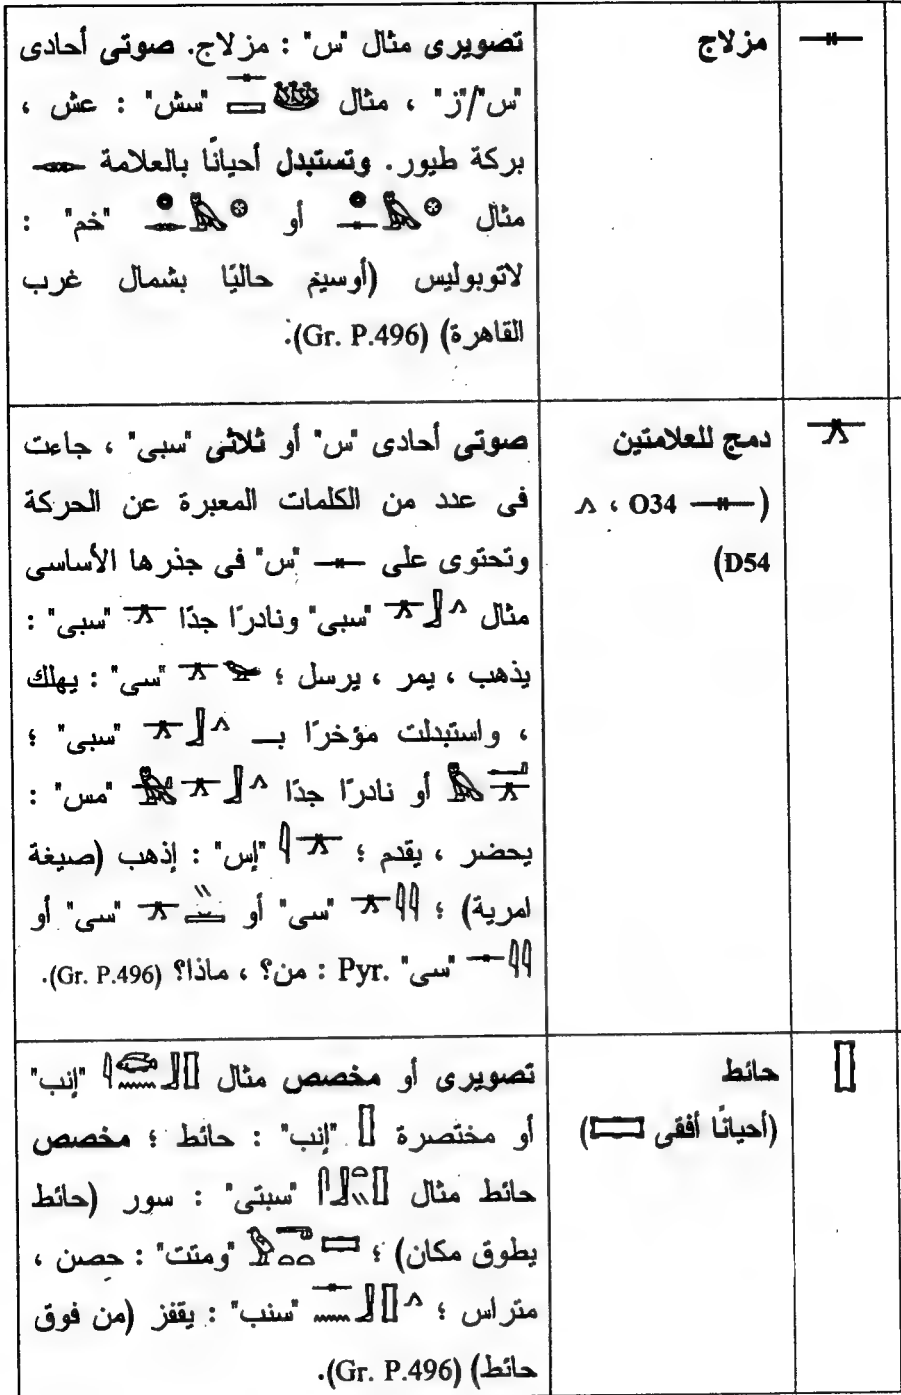 مزلاج
تصويرى مثال "س" : مزلاج. صوتى أحادى
"س"/"ز" ، مثال "سش" : عش ،
بركة طيور. وتستبدل أحيانًا بالعلامة
مثال أو "خم" :
لاتوبوليس (أوسيم حاليًا بشمال غرب
القاهرة) (Gr. P.496).
دمج للعلامتين
(O34 ،
D54)
صوتى أحادى "س" أو ثلاثى "سبى" ، جاعت
فى عدد من الكلمات المعبرة عن الحركة
وتحتوى على "س" فى جذرها الأساسى
مثال "سبى" ونادرًا جدًا "سبى" :
يذهب ، يمر ، يرسل ؛ "سى" : يهلك
، واستبدلت مؤخرًا بـــ "سبى" ؛
أو نادرًا جدًا "مس" :
يحضر ، يقدم ؛ "إس" : إذهب (صيغة
امرية) ؛ "سى" أو "سى" أو
"سى" Pyr. : من؟ ، ماذا؟ (Gr. P.496).
حائط
(أحيانًا أفقى)
تصويرى أو مخصص مثال "إنب"
أو مختصرة "إنب" : حائط ؛ مخصص
حائط مثال "سبتى" : سور (حائط
يطوق مكان) ؛ "ومتت" : حصن ،
متراس ؛ "سنب" : يقفز (من فوق
حائط) (Gr. P.496).